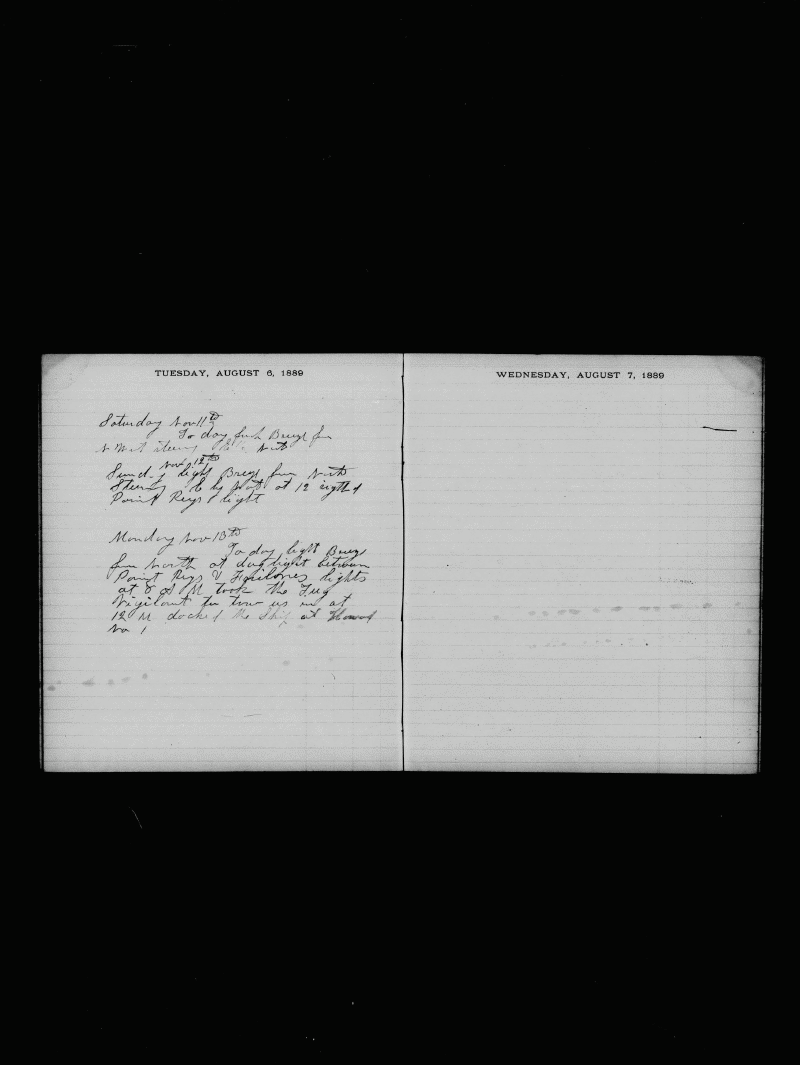 TUESDAY, AUGUST 6, 1889
Saturday Nov 11th
To day fresh Breeze from
N West steering North
Nov 12th
Sund. light Breeze from North
Steering E by North at 12 sighted
Point Reys light
Monday Nov 13th
To day light Breeze
from North at daylight between
Point Reys & Farilones lights
at 8 A M took the Tug
Vigilant to tow us in at
12 M docked the Ship at Howard
No 1
WEDNESDAY, AUGUST 7, 1889